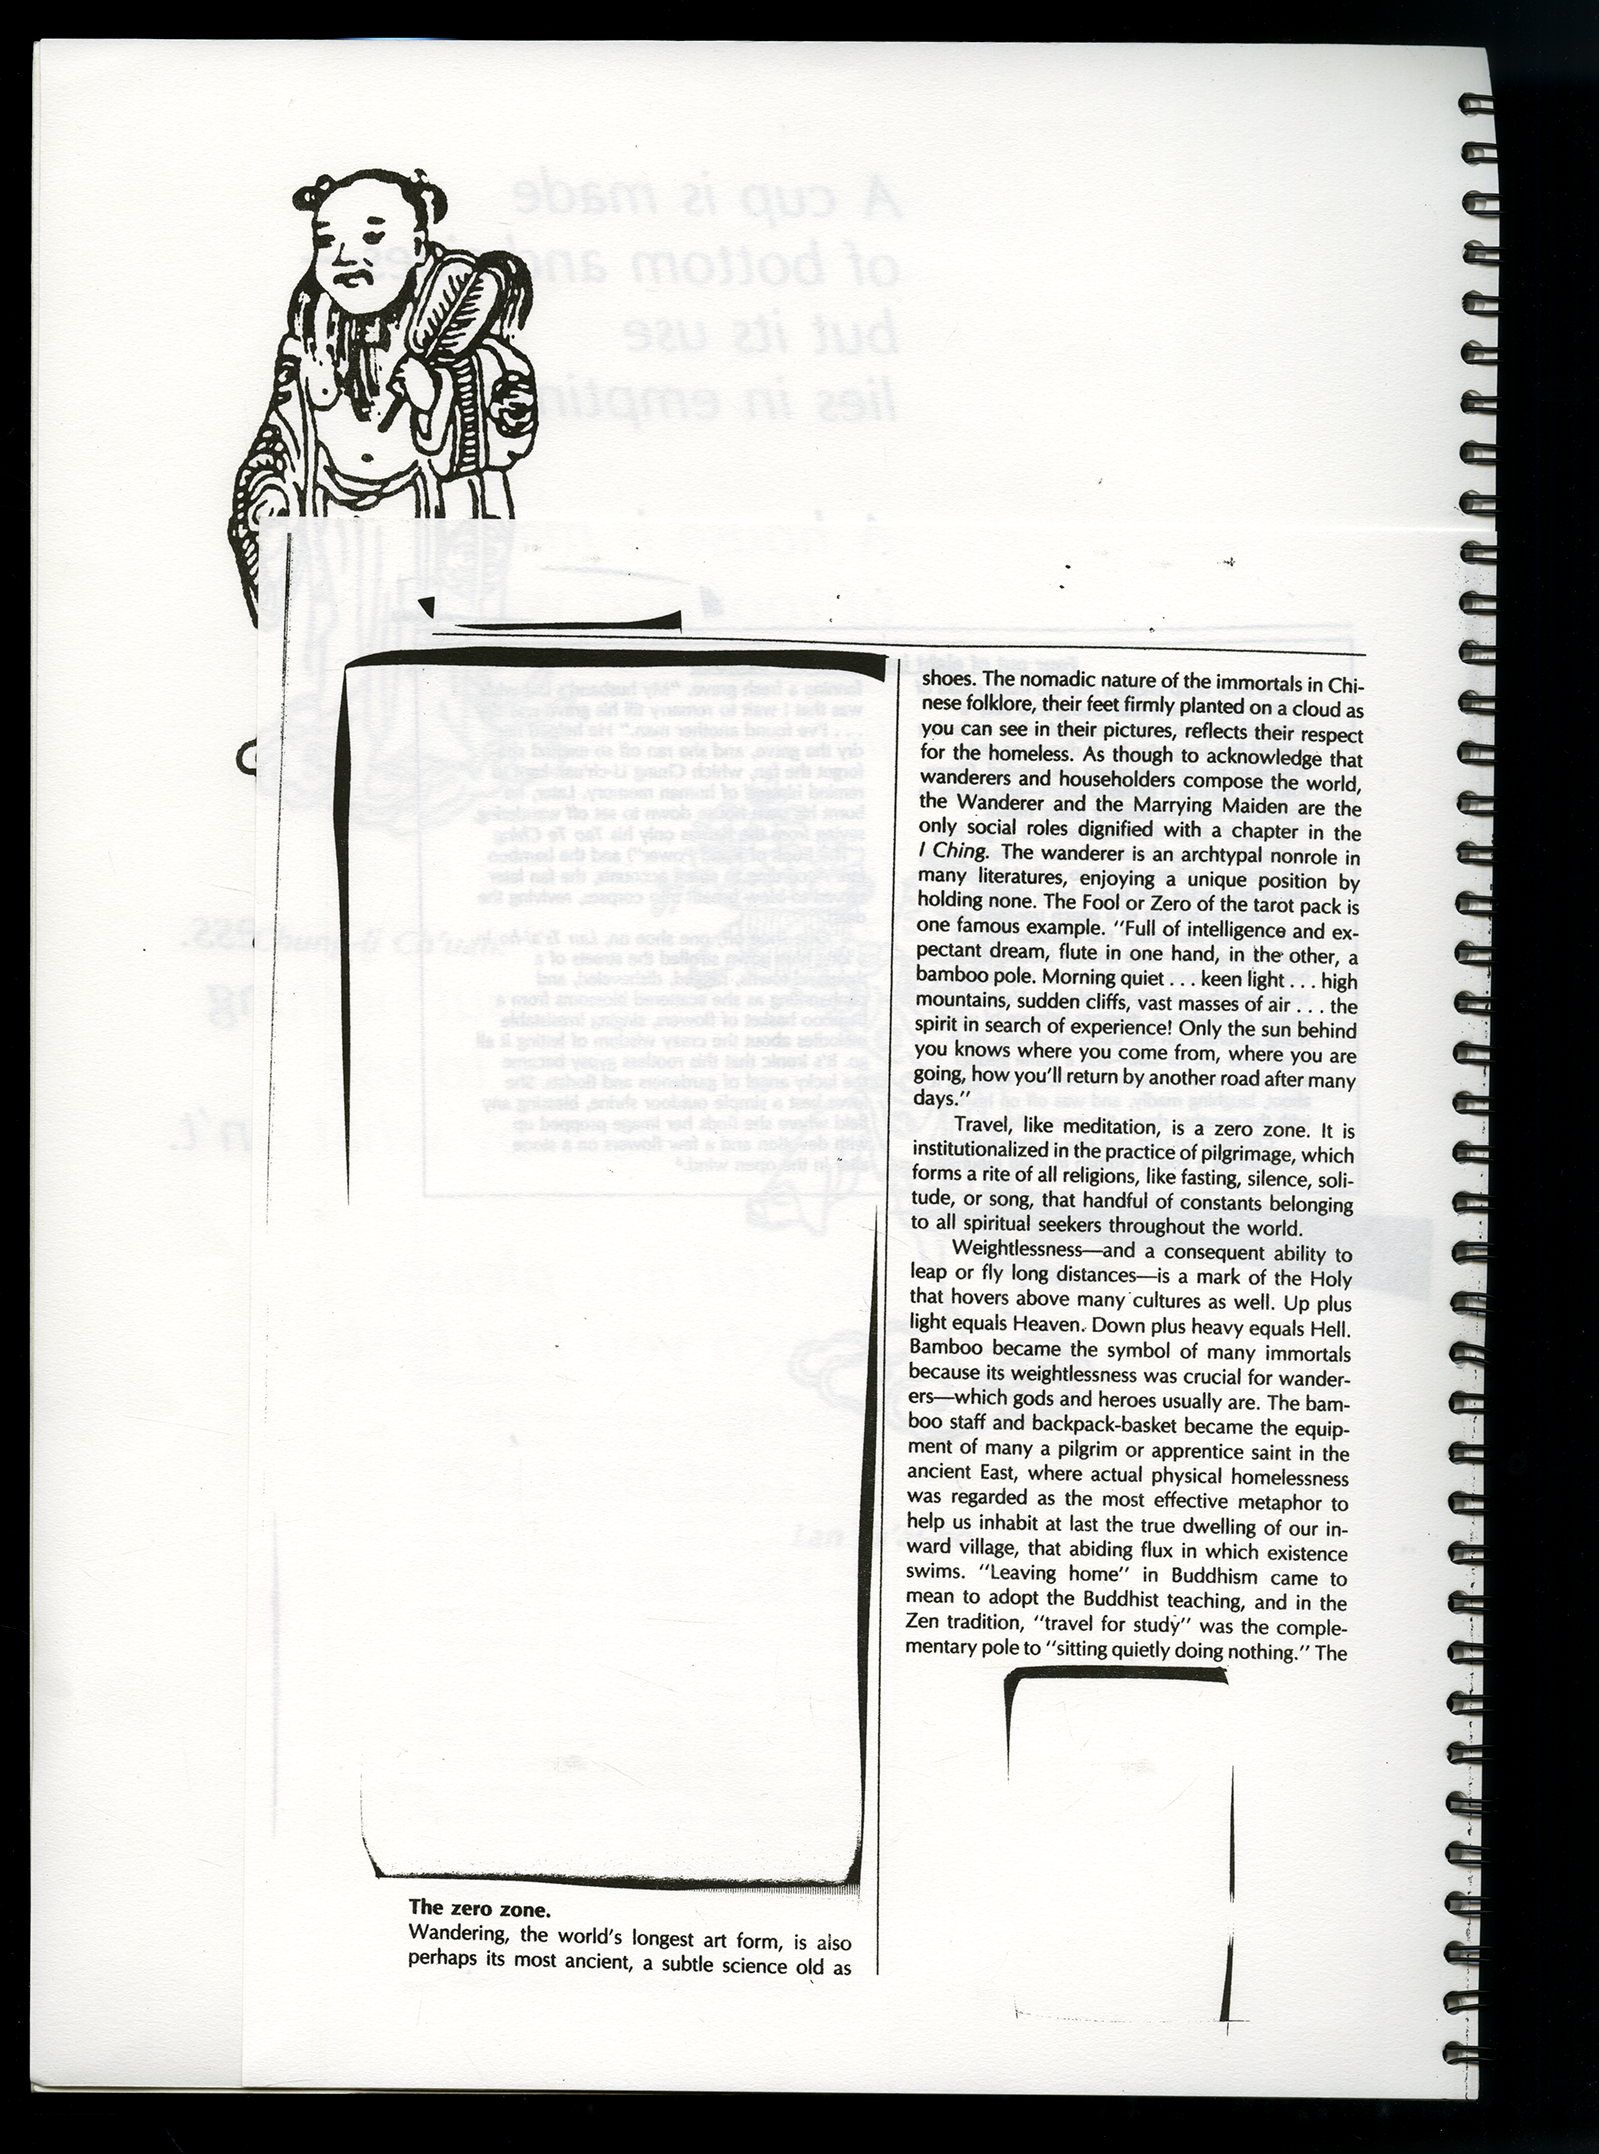 The zero zone.
Wandering, the world's longest art form, is also
perhaps its most ancient, a subtle science old as
shoes. The nomadic nature of the immortals in Chi-
nese folklore, their feet firmly planted on a cloud as
you can see in their pictures, reflects their respect
for the homeless. As though to acknowledge that
wanderers and householders compose the world,
the Wanderer and the Marrying Maiden are the
only social roles dignified with a chapter in the
I Ching. The wanderer is an archtypal nonrole in
many literatures, enjoying a unique position by
holding none. The Fool or Zero of the tarot pack is
one famous example. "Full of intelligence and ex-
pectant dream, flute in one hand, in the other, a
bamboo pole. Morning quiet . . . keen light . . . high
mountains, sudden cliffs, vast masses of air . . . the
spirit in search of experience! Only the sun behind
you knows where you come from, where you are
going, how you'll return by another road after many
days."
Travel, like meditation, is a zero zone. It is
institutionalized in the practice of pilgrimage, which
forms a rite of all religions, like fasting, silence, soli-
tude, or song, that handful of constants belonging
to all spiritual seekers throughout the world.
Weightlessness—and a consequent ability to
leap or fly long distances—is a mark of the Holy
that hovers above many cultures as well. Up plus
light equals Heaven. Down plus heavy equals Hell.
Bamboo became the symbol of many immortals
because its weightlessness was crucial for wander-
ers—which gods and heroes usually are. The bam-
boo staff and backpack-basket became the equip-
ment of many a pilgrim or apprentice saint in the
ancient East, where actual physical homelessness
was regarded as the most effective metaphor to
help us inhabit at last the true dwelling of our in-
ward village, that abiding flux in which existence
swims. "Leaving home" in Buddhism came to
mean to adopt the Buddhist teaching, and in the
Zen tradition, "travel for study" was the comple-
mentary pole to "sitting quietly doing nothing." The